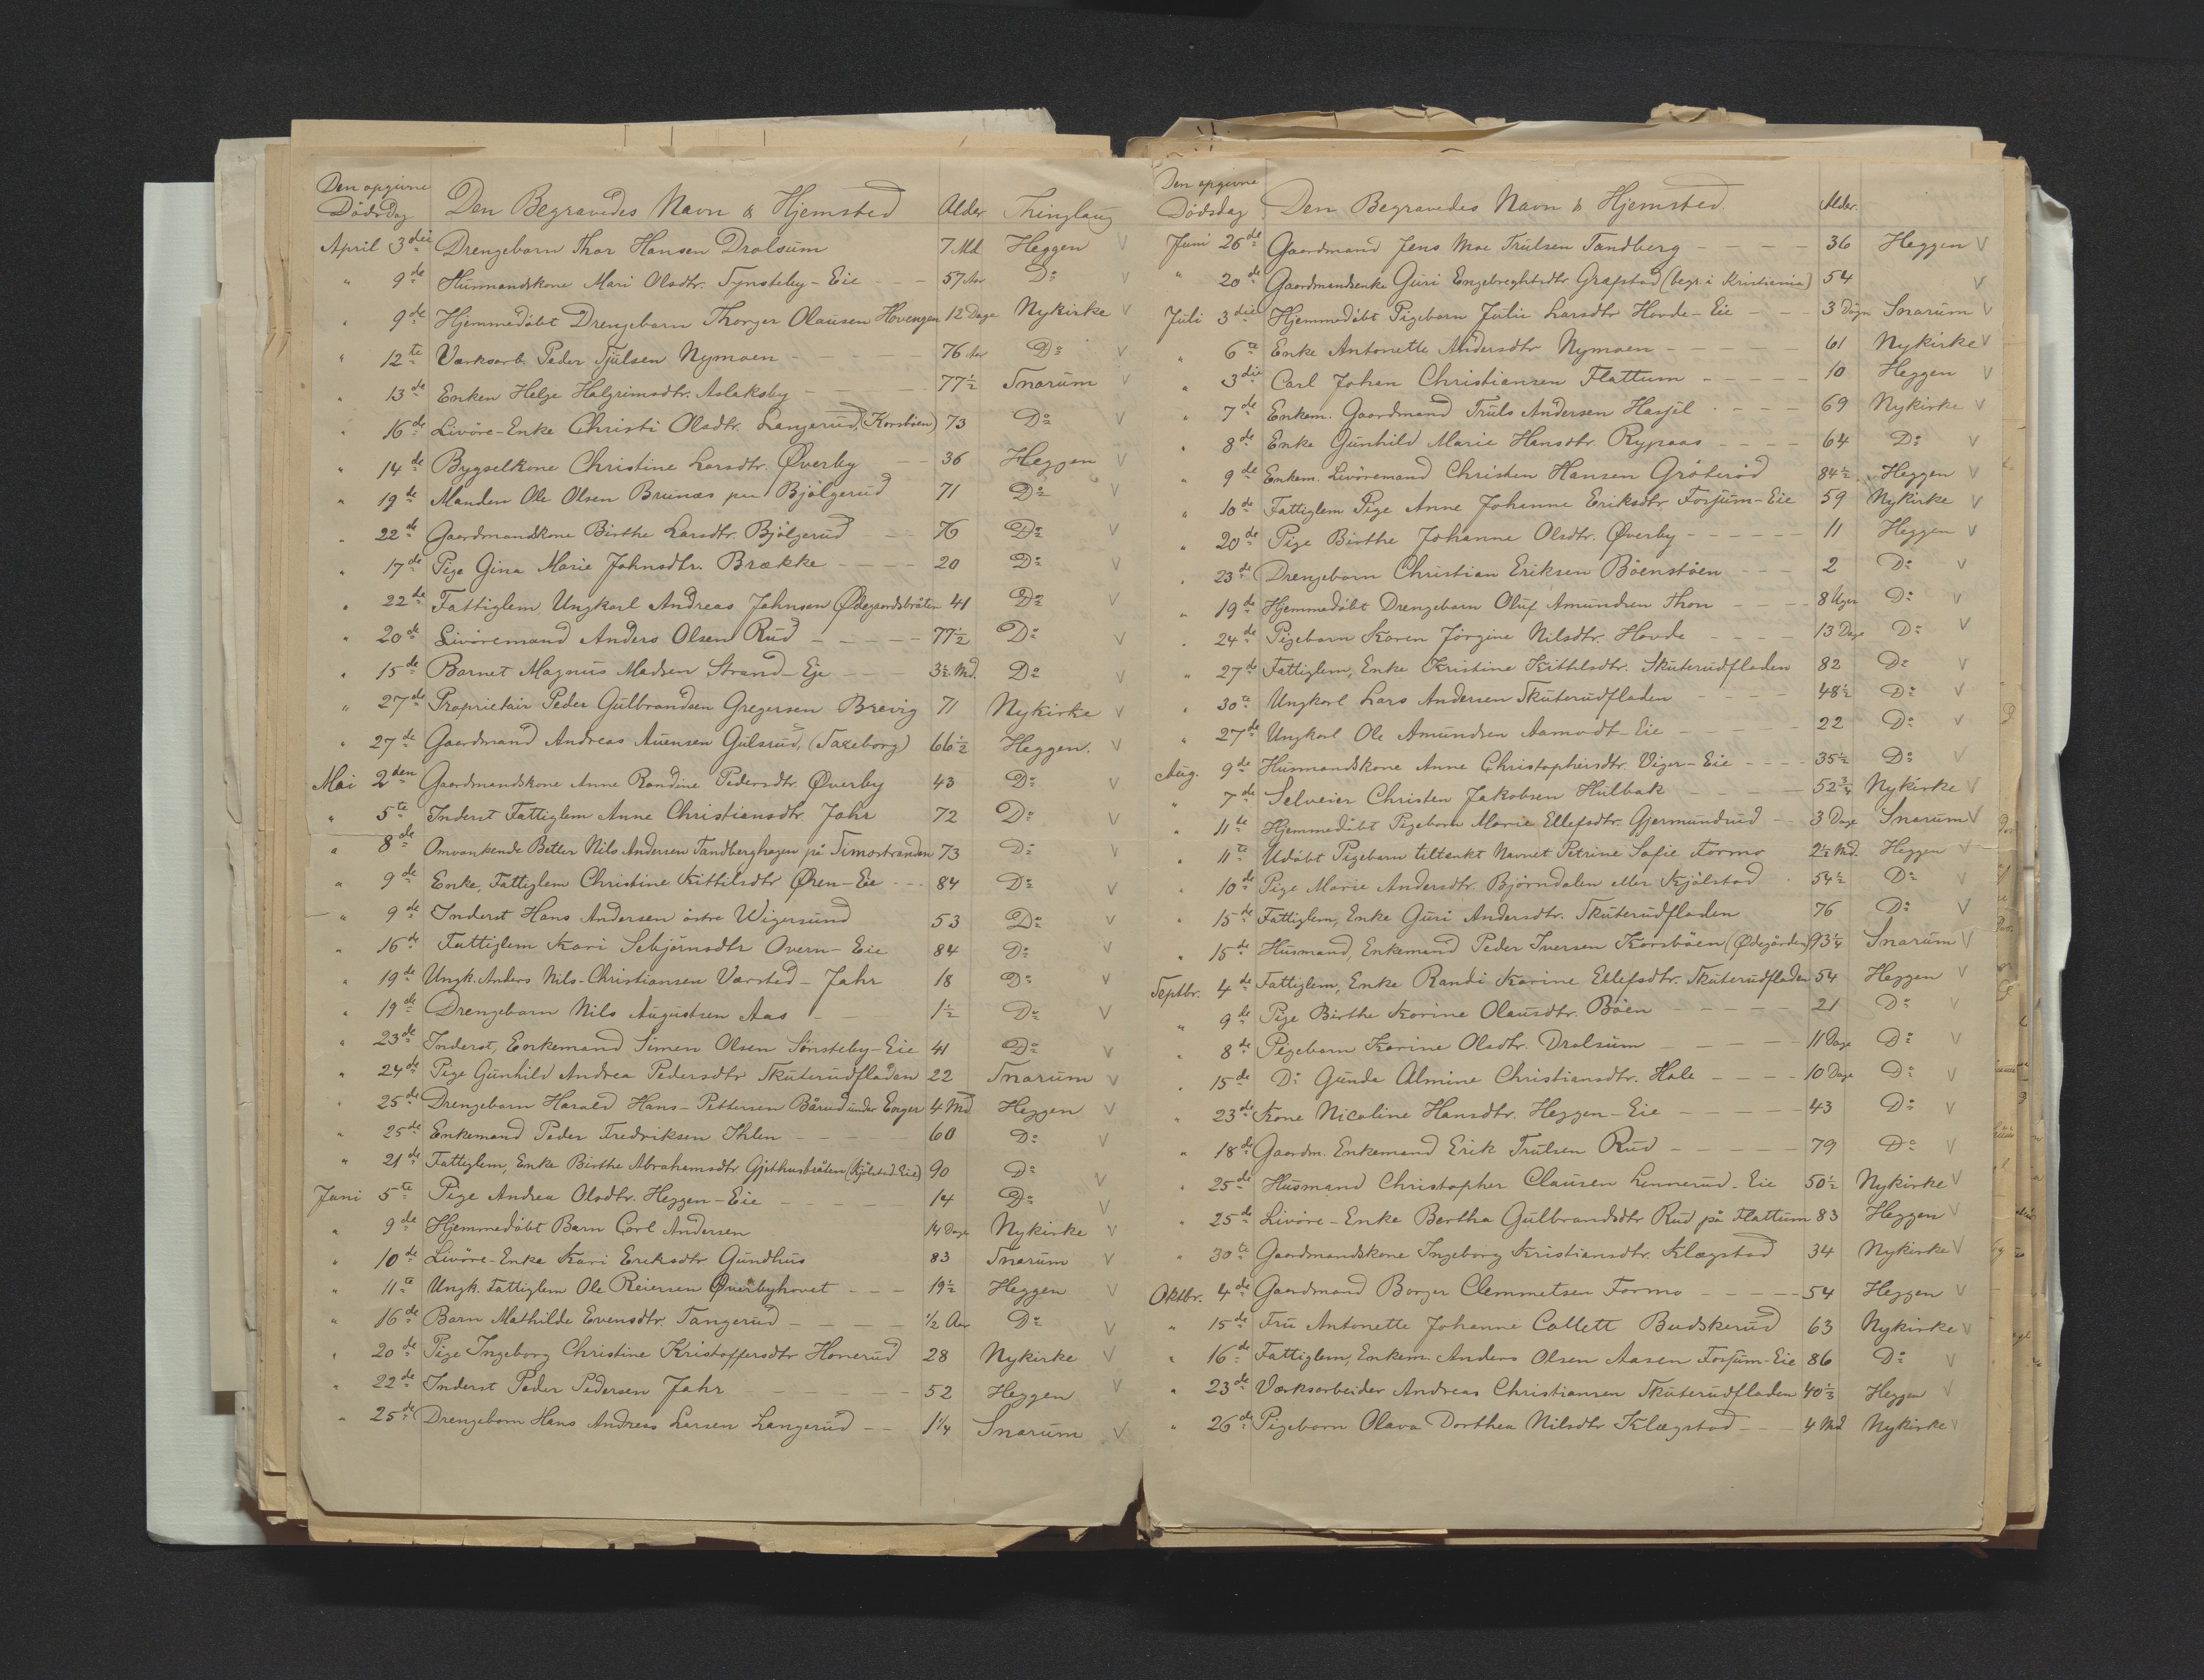 Den opgivne
Dödsdag Den Begravedes Navn & Hjemsted Alder Thinglaug
April 3die Drengebarn Thor Hansen Dralsum 7 Md. Heggen V
" 9de Husmandskone Mari Olsdtr. Tynsteby-Eie - - - 57 Aar Do V
" 9de Hjemmedöbt Drengebarn Thorger Olausen Hovengen 12 Dage Nykirke V
" 12te Værksarb. Peder Tjülsen Nymoen - 76 Aar Do V
" 13de Enken Helge Halgrimsdtr. Aslaksby - 77½ Snarum V
" 16de Livöre-Enke Christi Olsdtr. Langerud, (Korsböen) 73 Do V
" 14de Bygselkone Christine Larsdtr. Øverby 36 Heggen V
" 19de Manden Ole Olsen Brunæs paa Bjölgerud 71 Do V
" 22de Gaardmandskone Birthe Larsdtr. Bjölgerud - - 76 Do V
" 17de Pige Gina Marie Johnsdtr. Brække - - - - 20 Do V
" 22de Fattiglem, Ungkarl Andreas Johnsen Ødegaardsbråten 41 Do V
" 20de Livöremand Anders Olsen Rud - - - - 77½ Do V
" 15de Barnet Magnus Madsen Strand-Eje - - - 3½ Md. Do V
" 27de Proprietair Peder Gulbrandsen Gregersen Brevig 71 Nykirke V
" 27de Gaardmand Andreas Auensen Gulsrud, (Faxeborg) 66½ Heggen. V
Mai 2den Gaardmandskone Anne Randine Pedersdtr. Øverby 43 Do V
" 5te Inderst Fattiglem Anne Christiansdtr. Jahr 72 Do V
" 8de Omvankende Betler Nils Andersen Tandberghagen på Simostranden 73 Do V
" 9de Enke, Fattiglem Christine Kittilsdtr Øren-Eie - - - 84 Do V
" 9de Inderst Hans Andersen östre Wigersund 53 Do V
" 16de Fattiglem Kari Sebjörnsdtr Overn-Eie 84 Do V
" 19de Ungk. Anders Nils-Christiansen Værsted - Jahr 18 Do V
" 19de Drengebarn Nils Augustsen Aas - - 1½ Do V
" 23de Inderst, Enkemand Simen Olsen Sönsteby-Eie 41 Do V
" 24de Pige Gunhild Andrea Pedersdtr Skuterudfladen 22 Snarum V
" 25de Drengebarn Harald Hans-Pettersen Bårud under Enger 4 Md Heggen V
" 25de Enkemand Peder Fredriksen Ihlen - - - - - 60 Do V
" 21de Fattiglem, Enke Birthe Abrahamsdtr. Gjethusbråten (Kjölstad-Eie) 90 Do V
Juni 5te Pige Andrea Olsdtr. Heggen-Eie - - - - 14 Do V
" 9de Hjemmedöbt Barn Carl Andersen 14 Dage Nykirke V
" 10de Livöre-Enke Kari Eriksdtr Gundhus 83 Snarum V
" 11te Ungk. Fattiglem Ole Reiersen Øverbyhovet - - - 19½ Heggen V
" 16de Barn Mathilde Evensdtr. Tangerud - - - - ½ Aar Do V
" 20de Pige Ingeborg Christine Kristoffersdtr Honerud 28 Nykirke V
" 22de Inderst Peder Pedersen Jahr - - - - - 52 Heggen V
" 25de Drengebarn Hans Andreas Larsen Langerud - - 1¼ Snarum V
Den opgivne
Dödsdag Den Begravedes Navn & Hjemsted Alder.
Juni 26de Gaardmand Jens Moe Trulsen Tandberg - - - - 36 Heggen V
" 20de Gaardmandsenke Guri Engebreghtsdtr. Grafstad (begr. i Kristiania) 54 V
Juli 3die Hjemmedöbt Pigebarn Julie Larsdtr Hovde-Eie - - - 3 Dögn Snarum V
" 6te Enke Antonette Andersdtr Nymoen - - - - - 61 Nykirke V
" 3die Carl Johan Christiansen Flattum - - - - - 10 Heggen V
" 7de Enkem. Gaardmand Truls Andersen Hasjel - - - - 69 Nykirke V
" 8de Enke Gunhild Marie Hansdtr. Rypaas - - - - 64 Do V
" 9de Enkem. Livöremand Christen Hansen Gröteröd 84½ Heggen V
" 10de Fattiglem Pige Anne Johanne Eriksdtr. Forsum-Eie 59 Nykirke V
" 20de Pige Birthe Johanne Olsdtr. Øverby - - - - - - 11 Heggen V
" 23de Drengebarn Christian Eriksen Böenstöen - - - 2 Do V
" 19de Hjemmedöbt Drengebarn Oluf Amundsen Thon - - - - 8 Uger Do V
" 24de Pigebarn Karen Jörgine Nilsdtr. Hovde - - - - 13 Dage Do V
" 27de Fattiglem, Enke Kristine Kittilsdtr. Skuterudfladen 82 Do V
" 30te Ungkarl Lars Andersen Skuterudfladen - - - - 48½ Do V
" 27de Ungkarl Ole Amundsen Aamodt-Eie - - - - - 22 Do V
Aug. 9de Husmandskone Anne Christophersdtr. Viger-Eie - - - - 35½ Do V
" 7de Selveier Christen Jakobsen Hulbak - - - - - 52¾ Nykirke V
" 11te Hjemmedöbt Pigebarn Marie Ellefsdtr. Gjermundrud - - 3 Dage Snarum V
" 11te Udöbt Pigebarn tiltænkt Navnet Petrine Sofie Formo 2½ Md. Heggen V
" 10de Pige Marie Andersdtr. Björndalen eller Kjölstad - 54½ Do V
" 15de Fattiglem, Enke Guri Andersdtr. Skuterudfladen 76 Do V
" 15de Husmand, Enkemand Peder Iversen Korsböen (Ødegården) 93¼ Snarum V
Septbr. 4de Fattiglem, Enke Randi Karine Ellefsdtr. Skuterudfladen 54 Heggen V
" 9de Pige Birthe Karine Olausdtr. Böen - - - - - 21 Do V
" 8de Pigebarn Karine Olsdtr. Dralsum - - - - - 11 Dage Do V
" 15de Do Gunda Almine Christiansdtr. Hole - - - - 10 Dage Do V
" 23de Kone Nicoline Hansdtr. Heggen-Eie - - - - - 43 Do V
" 18de Gaardm. Enkemand Erik Trulsen Rud - - - - - 79 Do V
" 25de Husmand Christopher Clausen Linnerud-Eie 50½ Nykirke V
" 25de Livöre-Enke Bertha Gulbrandsdtr Rud på Flattum 83 Heggen V
" 30te Gaardmandskone Ingeborg Kristiansdtr. Klægstad 34 Nykirke V
Oktbr. 4de Gaardmand Borger Clemmetsen Formo - - - - - 54 Heggen V
" 15de Fru Antonette Johanne Collett Buskerud 63 Nykirke V
" 16de Fattiglem, Enkem. Anders Olsen Aasen Forsum-Eie 86 Do V
" 23de Værksarbeider Andreas Christiansen Skuterudfladen 40⅓ Heggen V
" 26de Pigebarn Olava Dorthea Nilsdtr Klægstad - - - 4 Md Nykirke V